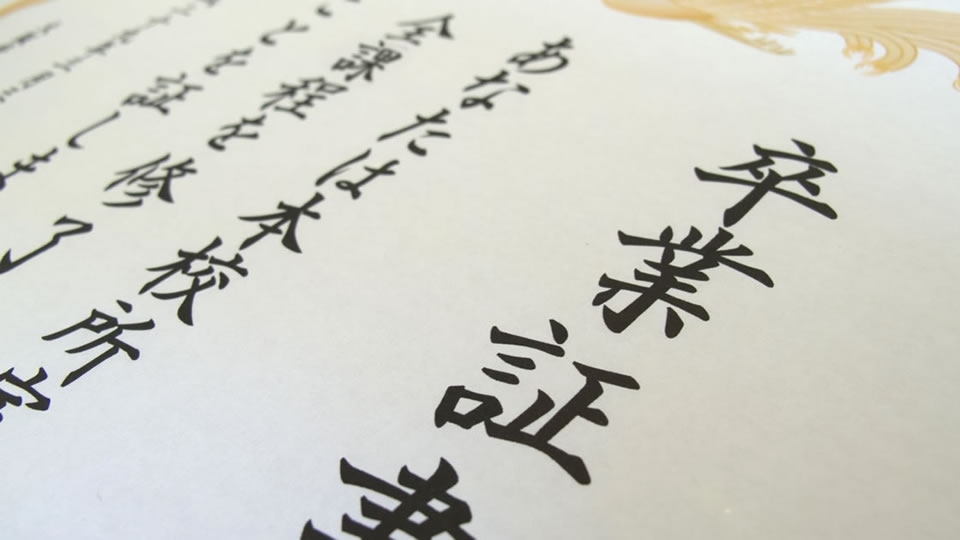 卒業証書
あなたは本校所定
全課程を修了
とを証しま